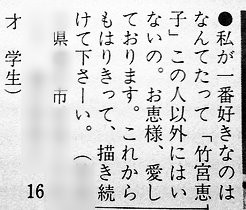 ●私が一番好きなのは
なんてたって「竹宮恵
子」この人以外にはい
ないの。お恵様、愛し
ております。これから
もはりきって、描き続
けて下さーい。（
県 市
16
才 学生）